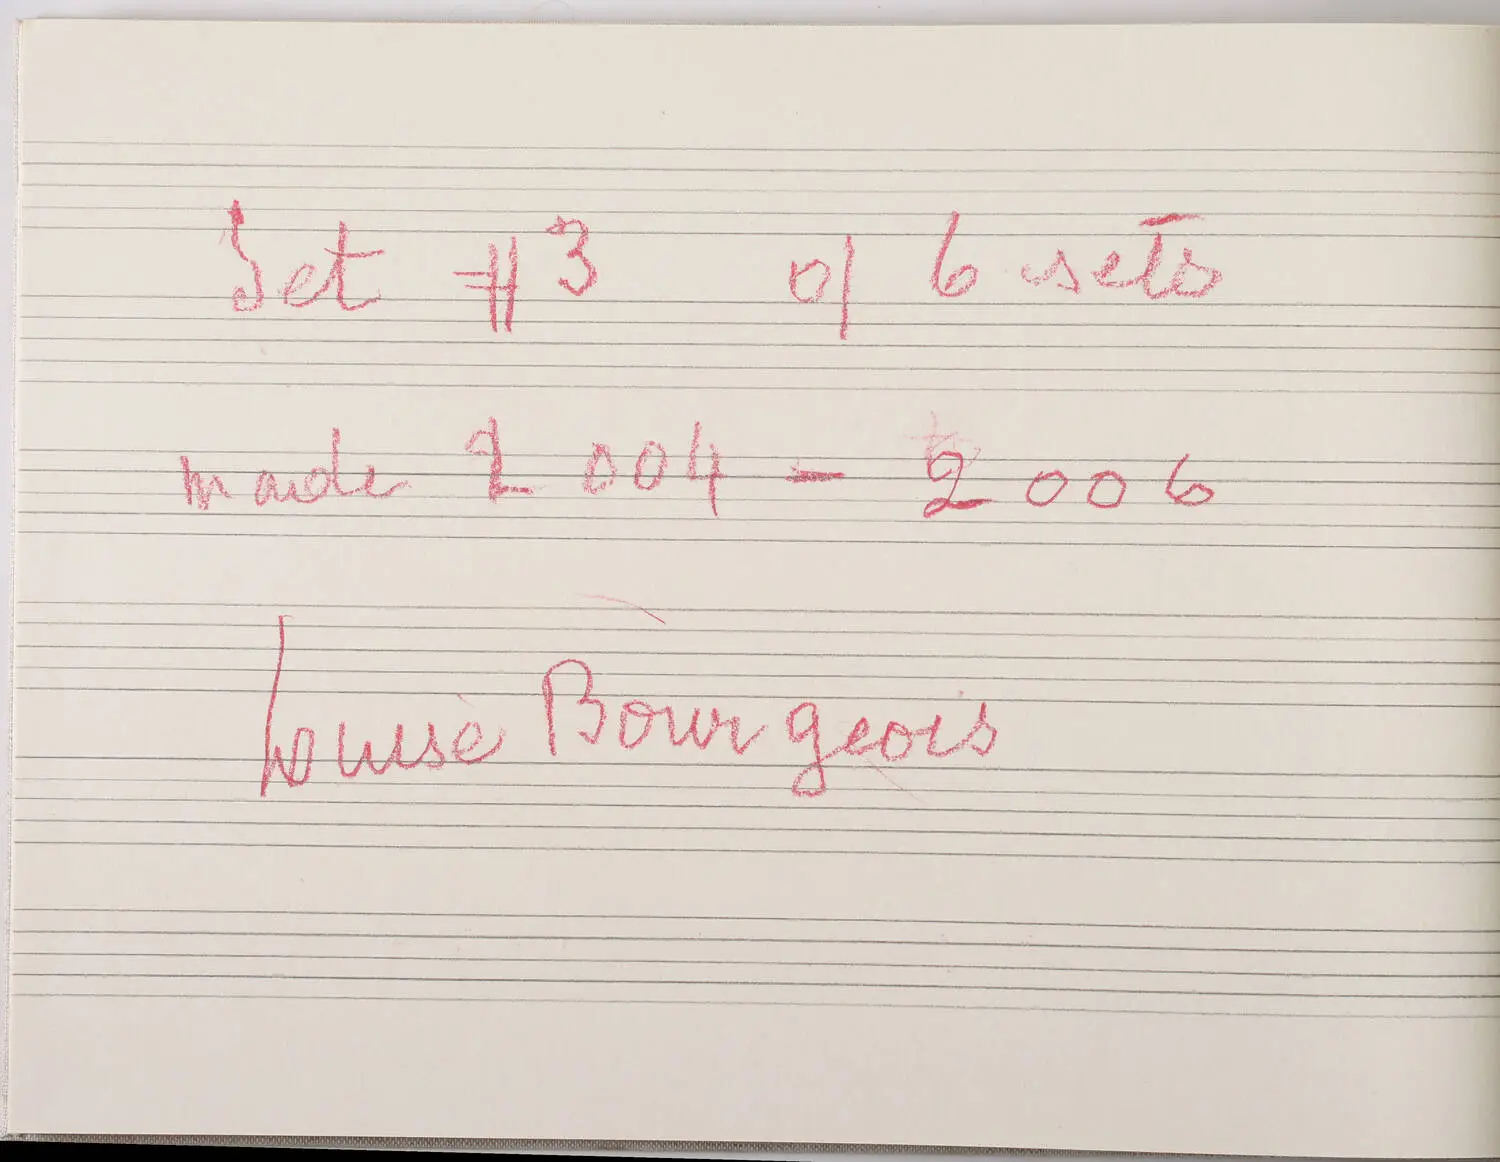 Set #3 of 6 sets
made 2004 - 2006
Louise Bourgeois